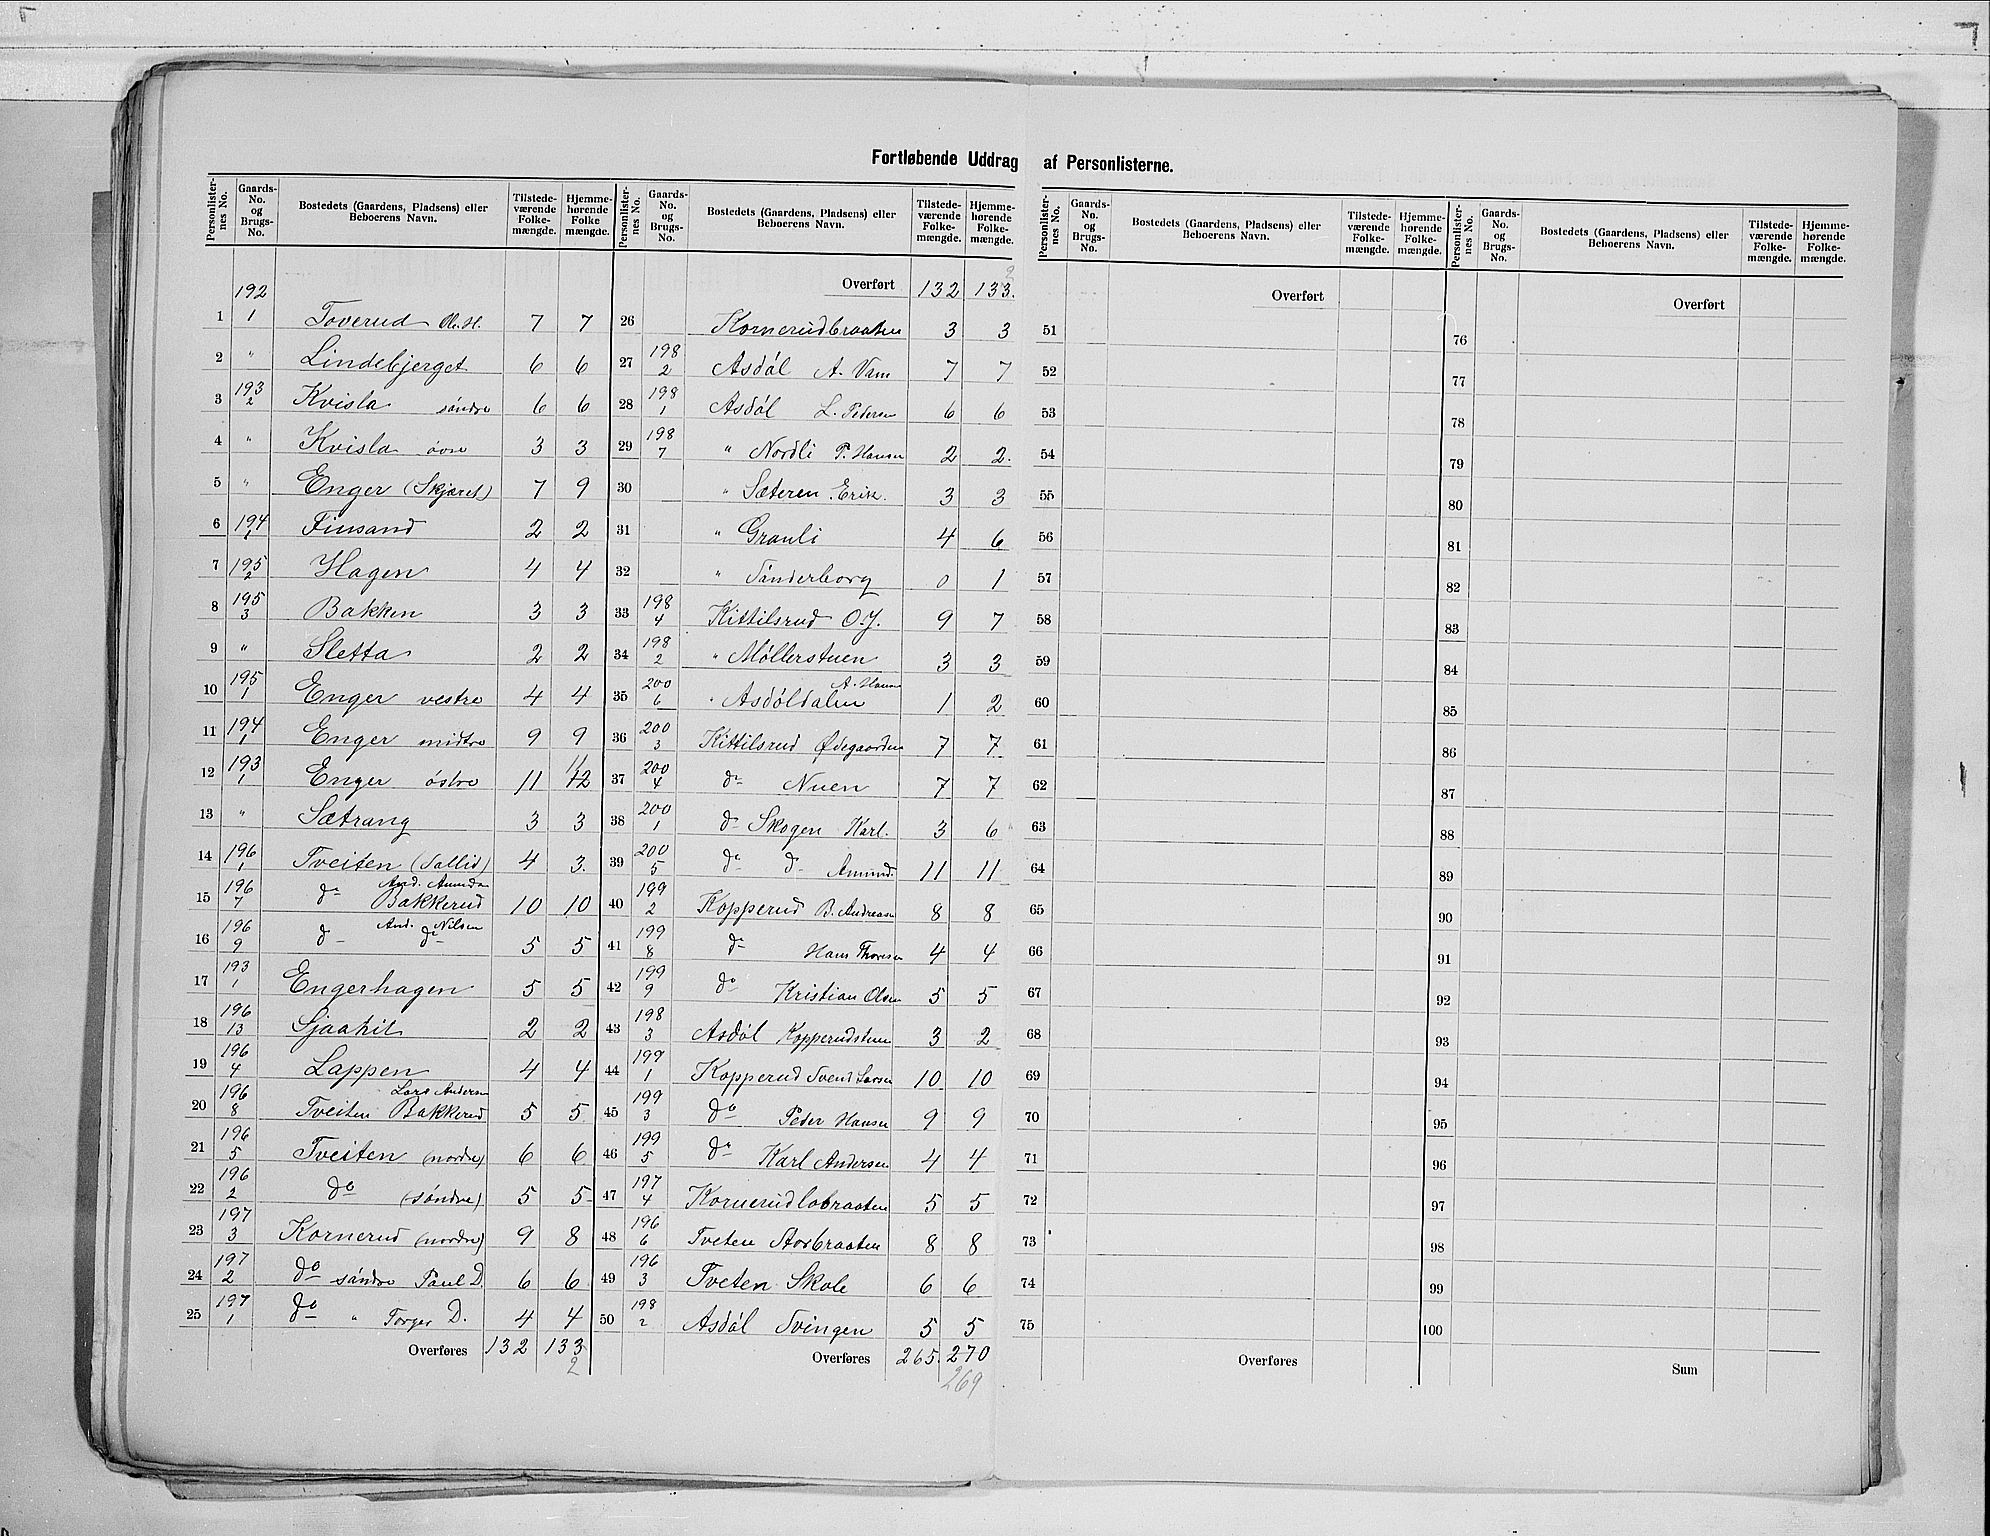 Fortløbende Uddrag af Personlisterne.
Personlisternes No. | Gaards-No. og Brugs-No. | Bostedets (Gaardens, Pladsens) eller Beboerens Navn. | Tilstedeværende Folkemængde. | Hjemmehørende Folkemængde.
1 192/1 Toverud Ol. H. 7 7
2 " Lindebjerget 6 6
3 193/2 Kvisla søndre 6 6
4 " Kvisla övre 3 3
5 " Enger (Skjæret) 7 9
6 194/1 Finsand 2 2
7 195/2 Hagen 4 4
8 195/3 Bakken 3 3
9 " Sletta 2 2
10 195/1 Enger vestre 4 4
11 194/1 Enger midtre 9 9
12 193/1 Enger östre 11 12 11
13 " Sætrang 3 3
14 196/1 Tveiten (Sollid) 4 3
15 196/7 do Bakkerud And. 10 10
16 196/9 do do And. Nilsen 5 5
17 193/1 Engerhagen 5 5
18 196/13 Sjaahit 2 2
19 196/4 Lappen 4 4
20 196/8 Tveiten Bakkerud Lars Andersen 5 5
21 196/5 Tveiten (nordre) 6 6
22 196/2 do (søndre) 5 5
23 197/3 Kornerud (nordre) 9 8
24 197/2 do søndre Paul D. 6 6
25 197/1 do " Torger D. 4 4
Overføres 132 133 2
Overført 132 133. 2
26 Kornerudbraaten 3 3
27 198/2 Asdöl A. Vam 7 7
28 198/1 Asdöl L. Pedersen 6 6
29 198/7 " Nordli P. Hansen 2 2.
30 " Sæteren Erik. 3 3
31 " Granli 4 6
32 " Sönderborg 0 1
33 198/4 Kittilsrud O. J. 9 7
34 198/2 " Møllerstuen 3 3
35 200/6 " Asdöldalen A. Hansen 1 2
36 200/3 Kittilsrud Ødegaarden 7 7
37 200/4 do Nuen 7 7
38 200/1 do Skogen Karl. 3 6
39 200/5 do do Amund. 11 11
40 199/2 Kopperud B. Andreasen 8 8
41 199/8 do Hans Thoresen 4 4
42 199/9 do Kristian Olsen 5 5
43 198/3 Asdöl Kopperudstuen 3 2
44 199/1 Kopperud Svend Larsen 10 10
45 199/3 do Peder Hansen 9 9
46 199/5 do Karl Andersen 4 4
47 197/4 Kornerudlobraaten 5 5
48 196/6 Tveten Aasbraaten 8 8
49 196/3 Tveten Skole 6 6
50 198/2 Asdöl Svingen 5 5
Overføres 265. 270
269
Personlisternes No. | Gaards-No. og Brugs-No. | Bostedets (Gaardens, Pladsens) eller Beboerens Navn. | Tilstedeværende Folkemængde. | Hjemmehørende Folkemængde.
Overført
51
52
53
54
55
56
57
58
59
60
61
62
63
64
65
66
67
68
69
70
71
72
73
74
75
Overføres
Overført
76
77
78
79
80
81
82
83
84
85
86
87
88
89
90
91
92
93
94
95
96
97
98
99
100
Sum